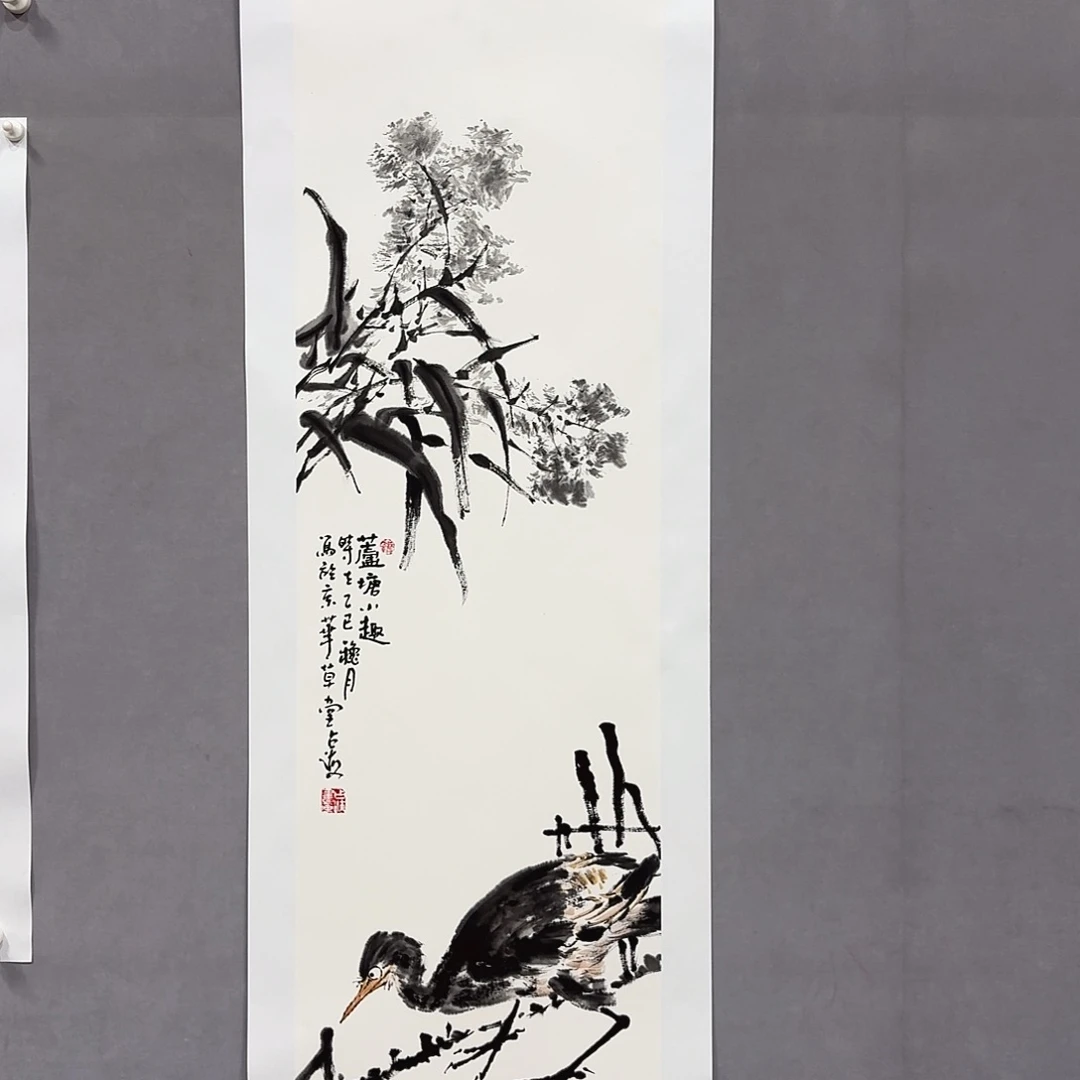 蘆塘小趣
時在乙巳穐月
寫於京華草堂占海